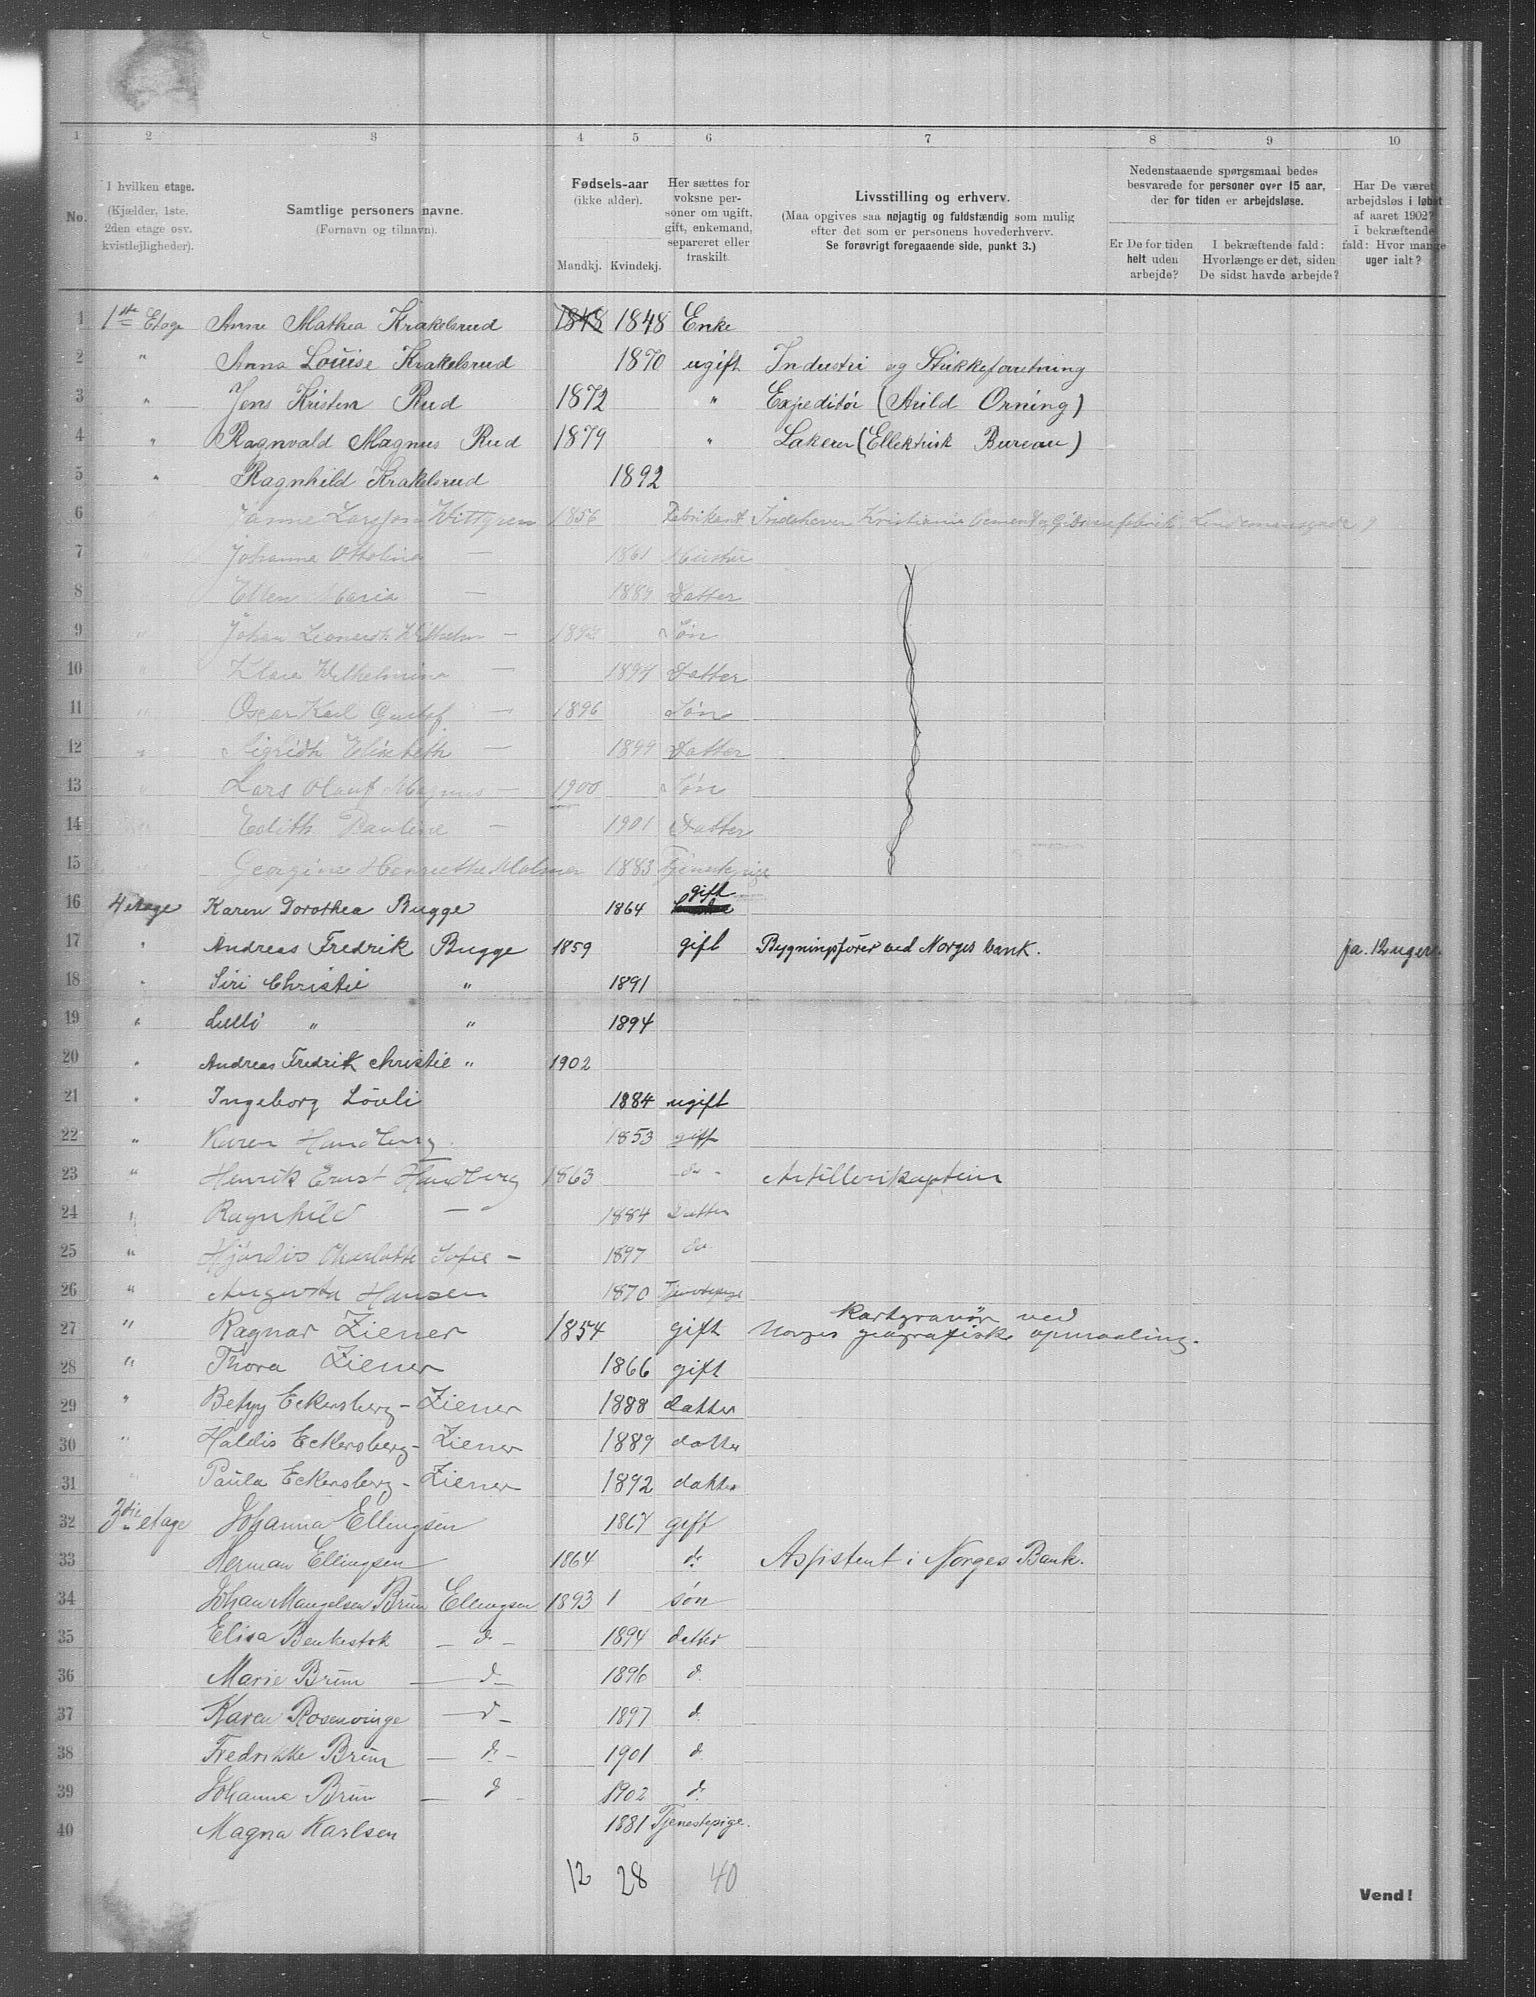 1 2 3 4 5 6 7 8 9 10
No.
I hvilken etage.
(Kjælder, 1ste, 2den etage osv. kvistlejligheder).
Samtlige personers navne.
(Fornavn og tilnavn).
Fødsels-aar
(ikke alder).
Mandkj. Kvindekj.
Her sættes for voksne personer om ugift, gift, enkemand, separeret eller fraskilt.
Livsstilling og erhverv.
(Maa opgives saa nøjagtig og fuldstændig som mulig
efter det som er personens hovederhverv.
Se forøvrigt foregaaende side, punkt 3.)
Nedenstaaende spørgsmaal bedes
besvarede for personer over 15 aar,
der for tiden er arbejdsløse.
Er De for tiden helt uden arbejde?
I bekræftende fald: Hvorlænge er det, siden De sidst havde arbejde?
Har De været arbejdsløs i løbet af aaret 1902? I bekræftende fald: Hvor mange uger ialt?
1 1ste Etage Anne Mathea Krakelsrud 1848 1848 Enke
2 " Anna Louise Krakelsrud 1870 ugift Industri og Strikkeforretning
3 " Jens Kristen Rud 1872 " Expeditør (Arild Orning)
4 " Ragnvald Magnus Rud 1879 " Lakerer (Ellektrisk Bureau)
5 " Ragnhild Krakelsrud 1892
6 " Janne Wittgren 1856 Fabrikant Indehaver Kristiania Cement
7 " Johanna Ottolina — 1861 Hustru
8 " Ellen Maria — 1889 Datter
9 " Johan Wilhelm — Søn
10 " Klara Wilhelmina — 1894 Datter
11 " Oscar Karl Gustaf — 1896 Søn
12 " Sigridh Elisabeth — 1899 Datter
13 " Lars Olauf Magnus — 1900 Søn
14 " Edith Paulina — 1901 Datter
15 " Georgine Henriette 1883 Tjenestepige
16 4 etage Karen Dorothea Bugge 1864 gift
17 " Andreas Fredrik Bugge 1859 gift Bygningsfører ved Norges bank. ja. 12 uger.
18 " Siri Christie " 1891
19 " Lulli " " 1894
20 " Andreas Fredrik Christie " 1902
21 " Ingeborg Lövli 1884 ugift
22 " Karen Handberg 1853 gift
23 " Henrik Ernst Handberg 1863 do - Artillerikaptein
24 " Ragnhild — " 1884 Datter
25 " Hjördis Charlotte Sofie — 1897 do
26 " Augusta Hansen 1870 Tjenestepige
27 " Ragnar Ziener 1854 gift Kartgravør ved
Norges geografiske opmaaling.
28 " Thora Ziener 1866 gift
29 " Betzy Eckersberg - Ziener 1888 datter
30 " Haldis Eckersberg - Ziener 1889 datter
31 " Paula Eckersberg - Ziener 1892 datter
32 3die etage Johanna Ellingsen 1867 gift
33 Herman Ellingsen 1864 d. Assistent i Norges Bank.
34 Johan Mangelsen Brun Ellingsen 1893 1 søn
35 Elisa Benkestok — d — 1894 datter
36 Marie Brun — d — 1896 d.
37 Karen Rosenvinge — d — 1897 d.
38 Fredrikke Brun — d — 1901 d.
39 Johanna Brun — d — 1902 d.
40 Magna Karlsen 1881 Tjenestepige.
12 28 40
Vend!